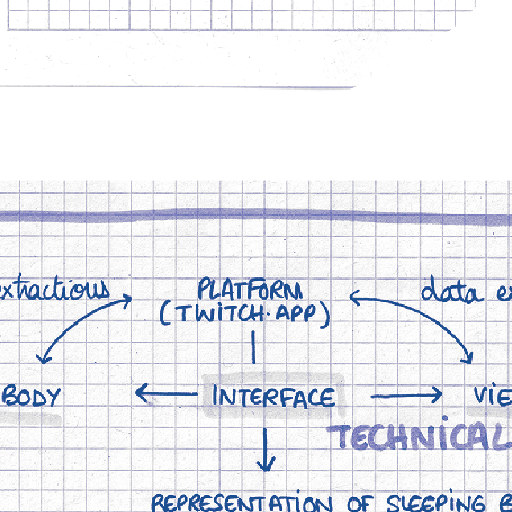 extractions PLATFORM data
(TWITCH·APP)
BODY INTERFACE
TECHNICAL
REPRESENTATION OF SLEEPING